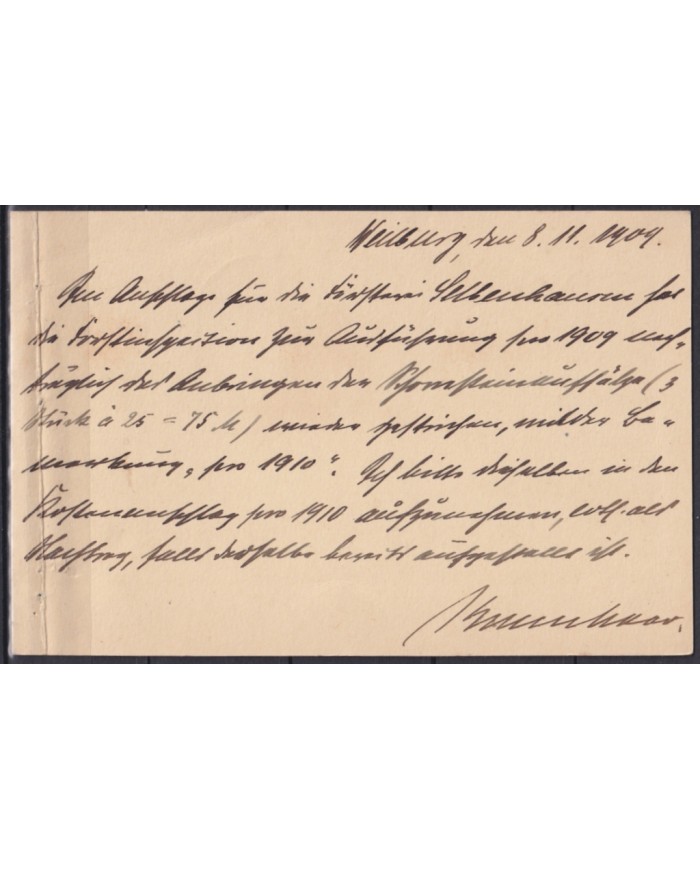 Weilburg, den 8. 11. 1909.
Im Anschlage für die Försterei Selbenhausen hat
die Forstinspection zur Ausführung pro 1909 nach-
träglich das Anbringen der Schornsteinaufsätze (3
Stück à 25 = 75 M) wieder gestrichen, mit der Be-
merkung „pro 1910“. Ich bitte dieselben in den
Kostenanschlag pro 1910 aufzunehmen, evtl. als
Nachtrag, falls derselbe bereits aufgestellt ist.